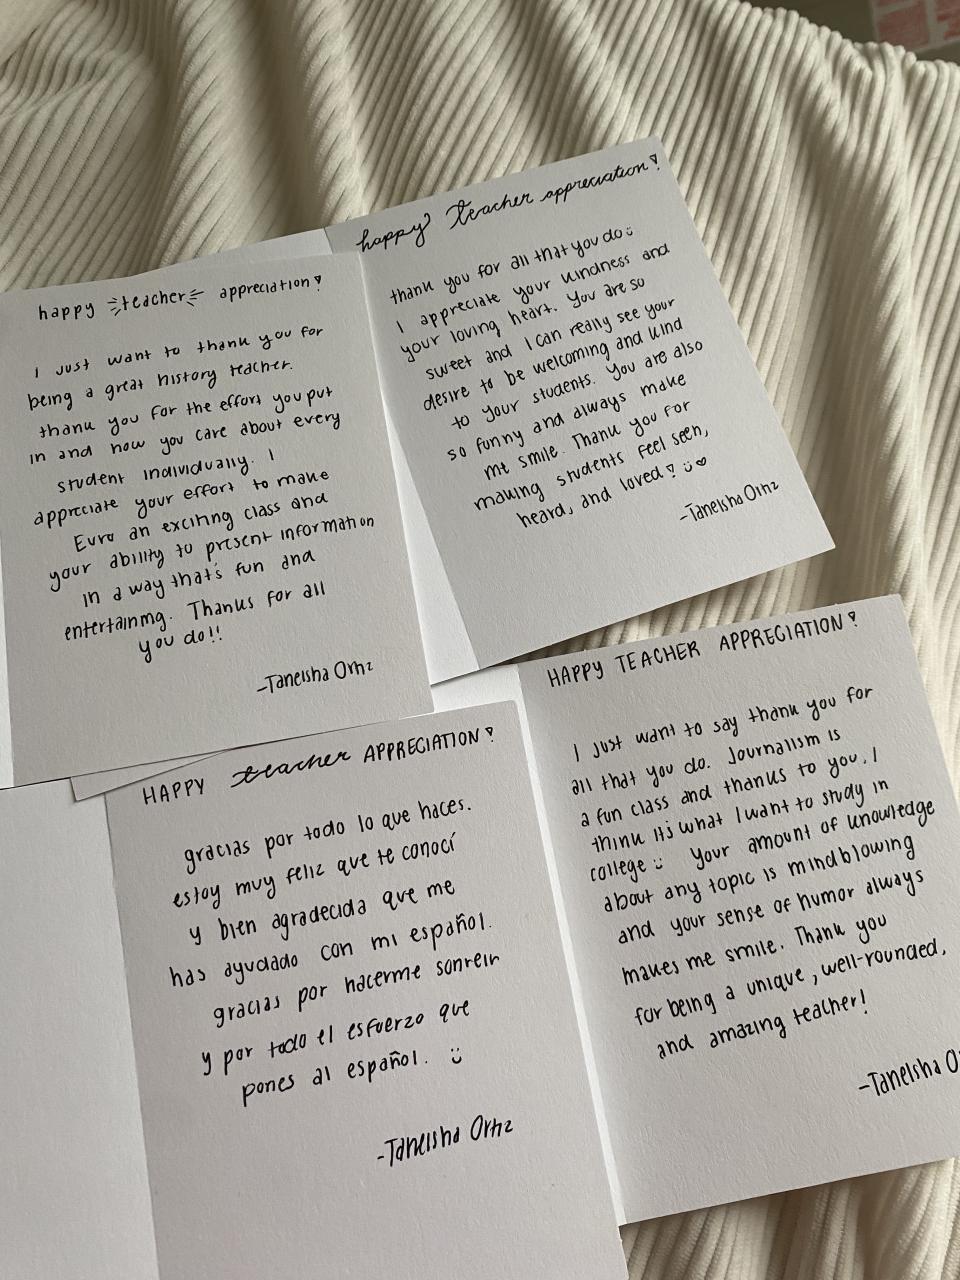 happy teacher appreciation!
I just want to thank you for
being a great history teacher.
thank you for the effort you put
in and how you care about every
student individually. I
appreciate your effort to make
Euro an exciting class and
your ability to present information
in a way that's fun and
entertaining. Thanks for all
you do!!
-Taneisha Ortiz
happy teacher appreciation!
thank you for all that you do :)
I appreciate your kindness and
your loving heart. You are so
sweet and I can really see your
desire to be welcoming and kind
to your students. You are also
so funny and always make
me smile. Thank you for
making students feel seen,
heard, and loved! :) ♥
-Taneisha Ortiz
HAPPY teacher APPRECIATION!
gracias por todo lo que haces.
estoy muy feliz que te conocí
y bien agradecida que me
has ayudado con mi español.
gracias por hacerme sonreir
y por todo el esfuerzo que
pones al español. :)
-Taneisha Ortiz
HAPPY TEACHER APPRECIATION!
I just want to say thank you for
all that you do. Journalism is
a fun class and thanks to you, I
think it's what I want to study in
college :) Your amount of knowledge
about any topic is mindblowing
and your sense of humor always
makes me smile. Thank you
for being a unique, well-rounded,
and amazing teacher!
-Taneisha O